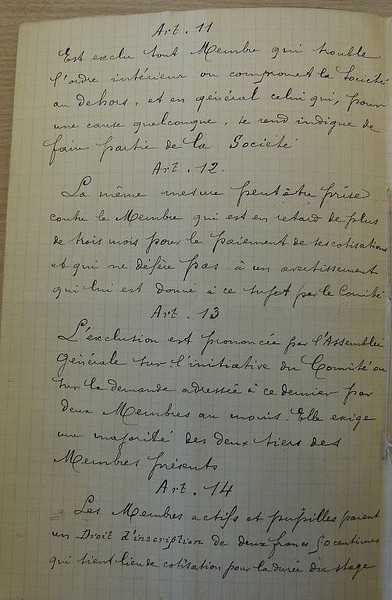 Art. 11
Est exclu tout Membre qui trouble
l'ordre intérieur ou compromet la Société
au dehors, et en général celui qui, pour
une cause quelconque, se rend indigne de
faire partie de la Société
Art. 12.
La même mesure peut être prise
contre le Membre qui est en retard de plus
de trois mois pour le paiement de ses cotisations
et qui ne défère pas à un avertissement
qui lui est donné à ce sujet par le Comité
Art. 13
L'exclusion est prononcée par l'Assemblée
Générale sur l'initiative du Comité ou
sur la demande adressée à ce dernier par
deux Membres au moins. Elle exige
une majorité des deux tiers des
Membres présents
Art. 14
Les Membres actifs et pupilles paient
un Droit d'inscription de deux francs 50 centimes
qui tient lieu de cotisation pour la durée du stage